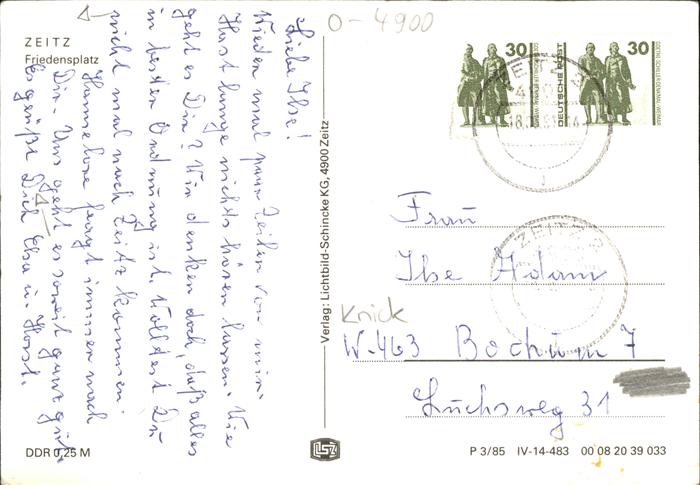 ZEITZ
Friedensplatz
O-4900
Liebe Ilse!
Wieder mal paar Zeilen von mir.
Hast lange nichts hören lassen. Wie
geht es Dir? Wir denken doch, daß alles
in bester Ordnung ist. Wolltest Du
nicht mal nach Zeitz kommen.
Hannelore fragt immer nach
Dir. Uns geht es soweit ganz gut.
Es grüßt Dich Elsa u. Horst.
DDR 0,25 M
Verlag: Lichtbild-Schincke KG, 4900 Zeitz
30
DEUTSCHE POST
30
ZEITZ
Frau
Ilse Adam
Knick
W-463 Bochum 7
Luchsweg 31
P 3/85 IV-14-483 00 08 20 39 033